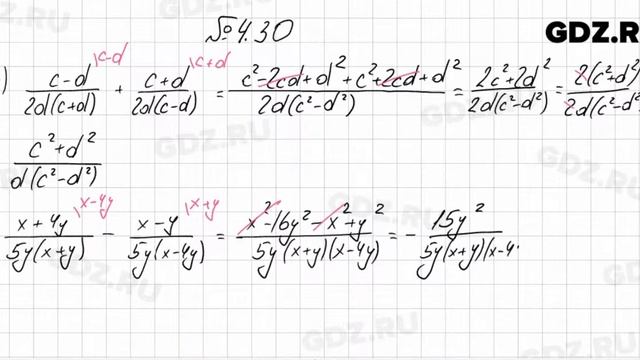 №4.30
GDZ.RU
) (c-d)/(2d(c+d)) \c-d + (c+d)/(2d(c-d)) \c+d = (c²-2cd+d²+c²+2cd+d²)/(2d(c²-d²)) = (2c²+2d²)/(2d(c²-d²)) = 2(c²+d²)/2d(c²-d²
(c²+d²)/(d(c²-d²))
(x+4y)/(5y(x+y)) \x-4y - (x-y)/(5y(x-4y)) \x+y = (x²-16y²-x²+y²)/(5y(x+y)(x-4y)) = - 15y²/(5y(x+y)(x-4
GDZ.RU
GDZ.RU
GDZ.RU
GDZ.RU